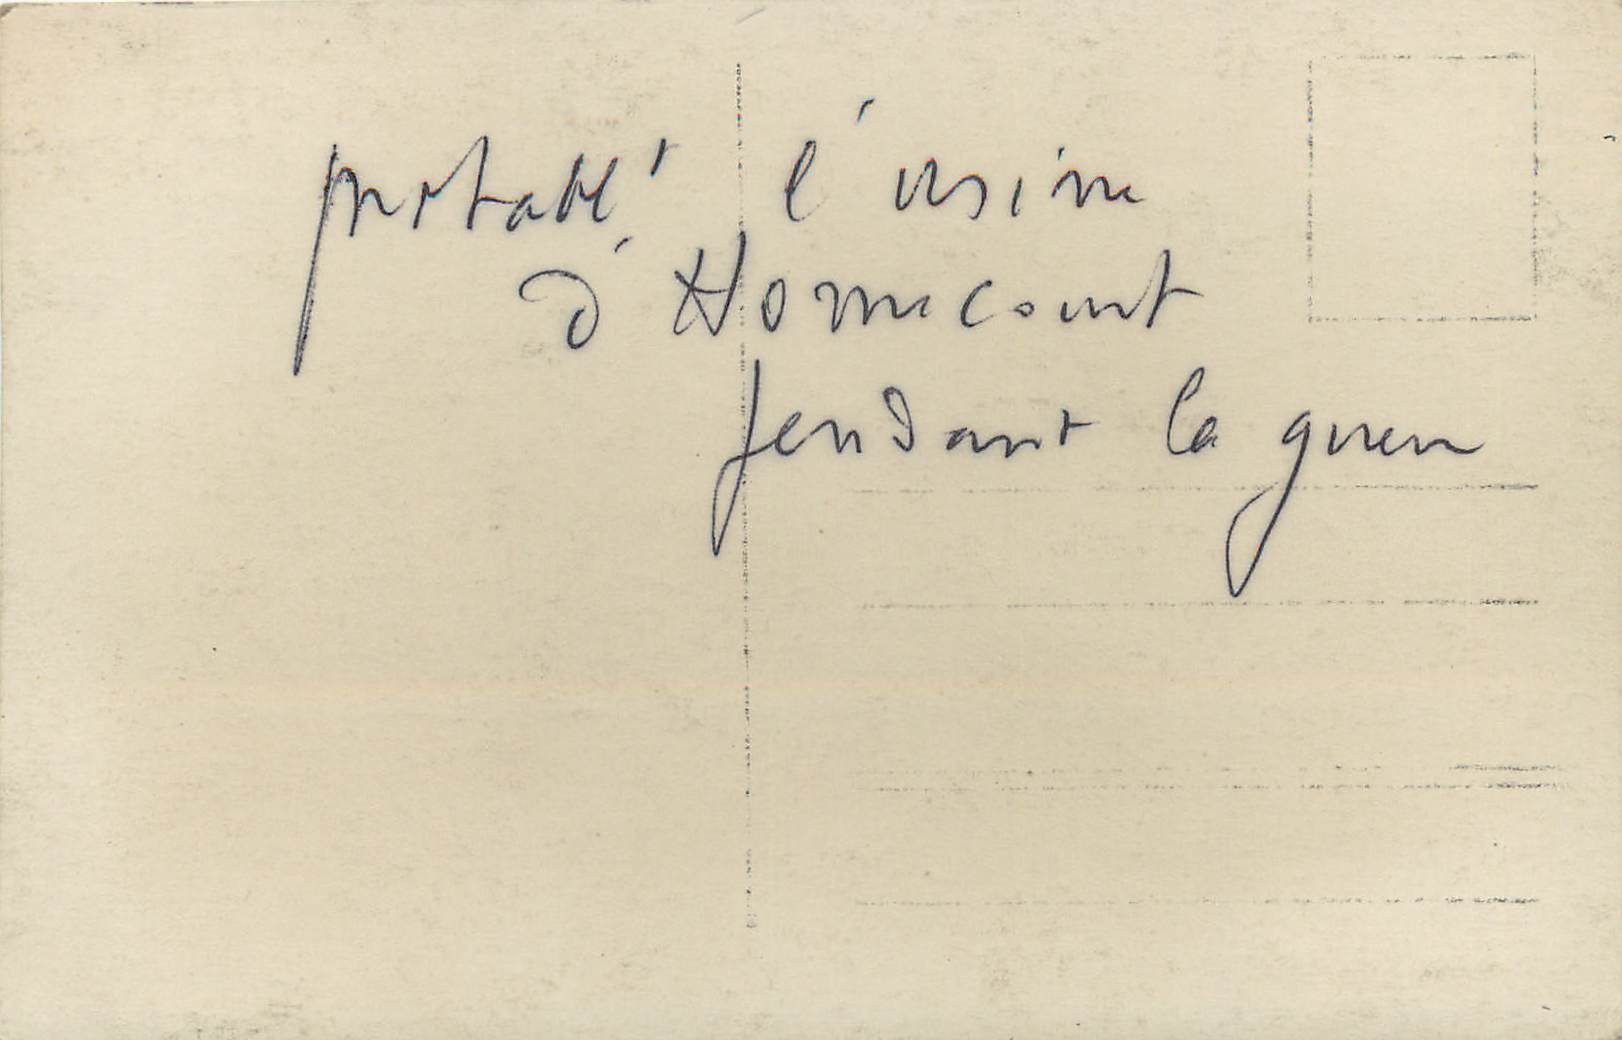 probabl' l'usine
d'Homecourt
pendant la guerre